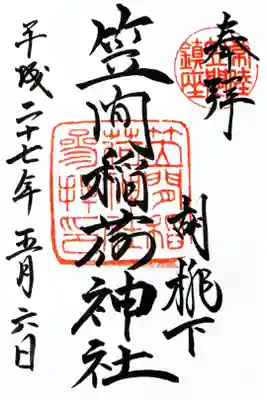 奉拝
胡桃下
笠間稲荷神社
平成二十七年五月六日